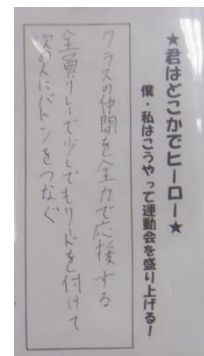 ★君はどこかでヒーロー★
僕・私はこうやって運動会を盛り上げる！
クラスの仲間を全力で応援する
全員リレーで少しでもリードを付けて
次の人にバトンをつなぐ